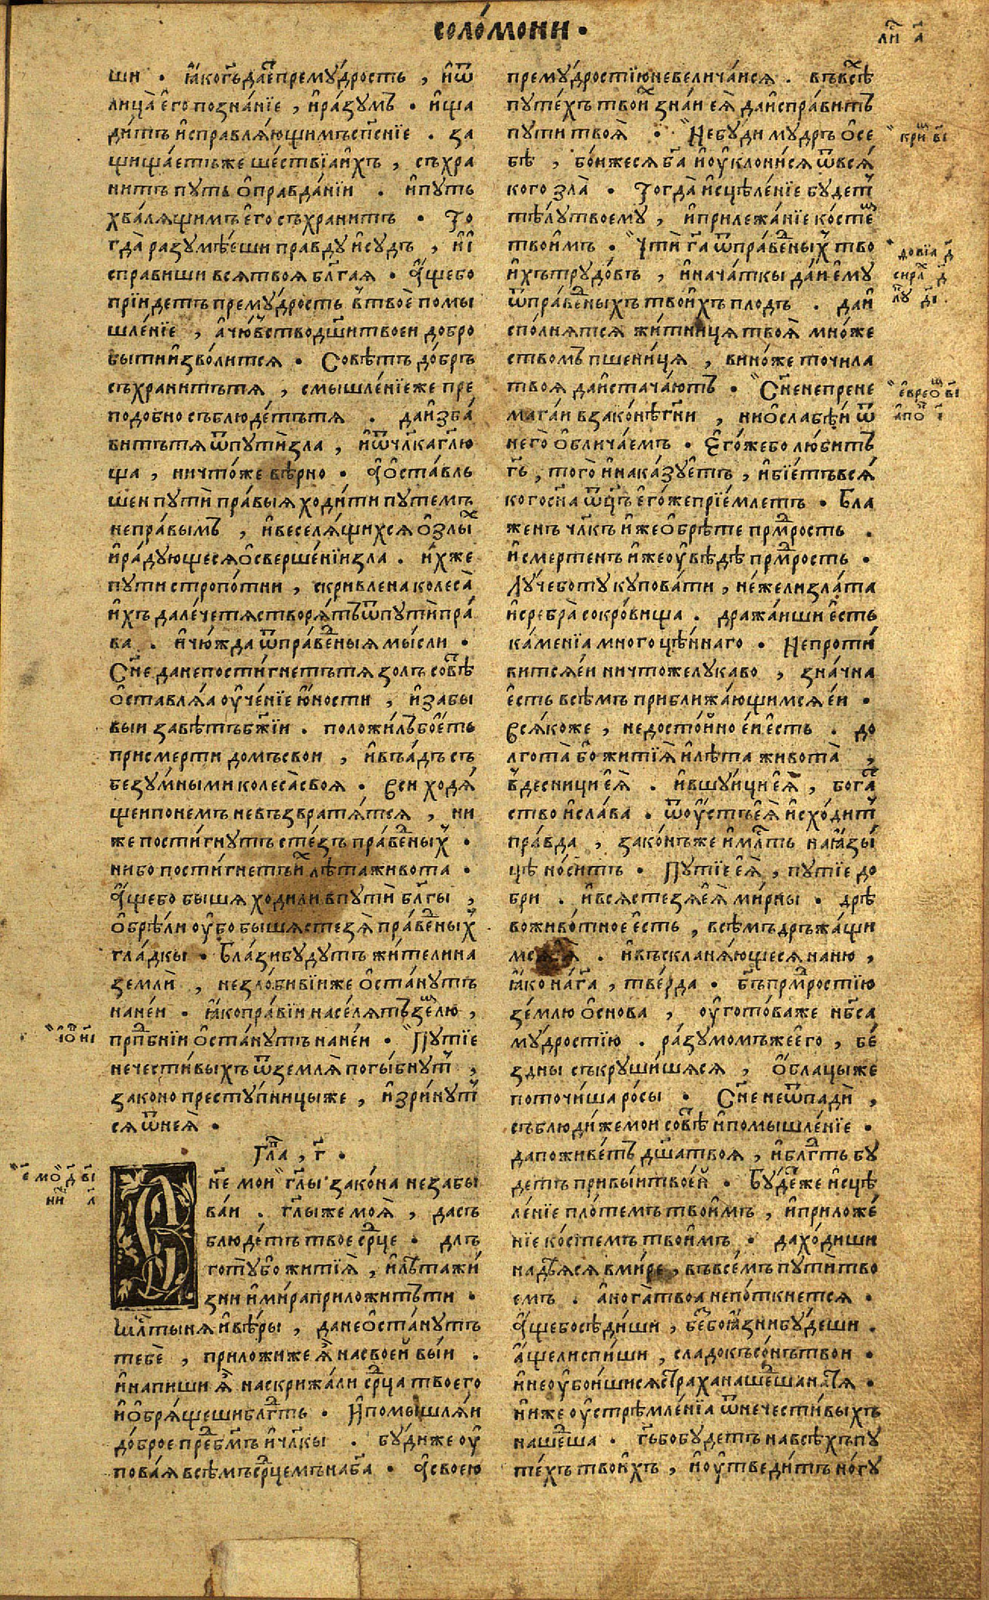 соло́мони .
ли́ а҃
ши . ꙗ҆́когь дае҆́ премꙋ́дрость , и҆ ѿ
лица̀ є҆го познанїе , и҆ ра́зумъ . и҆ ща
ди́тъ и҆справля́ющимъ спⷭ҇нїе . за
щища́етъ же ше́ствїа и҆́хъ , съхра
ни́тъ пꙋть ѡ҆правда́нїи . и҆ пꙋть
хва́лящимъ є҆го съхрани́тъ . То
гда̀ разумѣ́еши правдꙋ и҆ сꙋдъ , и҆ и҆
справиши всѧ твоѧ бл҃гая . а҆́ще бо
прїи́детъ премꙋ́дрость в твоѐ помы
шле́нїе , а҆ чю́вство дш҃и твоеи добро
быти и҆зво́лится . Совѣ́тъ до́бръ
съхрани́тъ тя , смышле́нїе же пре
подобно съблюде́тъ тя . да и҆зба́
витъ тя ѿ пꙋти зла , и҆ ѿ чл҃ка гл҃ю
ща , ничто́же вѣ́рно . ѽ ѡ҆ста́вль
шеи пꙋтѝ пра́выя ходи́ти пꙋтемъ
непра́вымъ , и҆ веселя́щихся ѡ҆ злы́х
и҆ ра́дꙋющеся ѡ҆ свершенїи зла . и҆́хже
пꙋти стропо́тни , скривлена колеса̀
и҆́хъ дале́че тя створя́тъ ѿ пꙋтѝ пра́
ва . и҆ чю́жда ѿ пра́веныя мы́сли .
Сн҃е да не пости́гнетъ тя золъ совѣ́
ѡ҆ставля́а оу҆че́нїе ю҆́ности , и҆ забы
выи завѣ́тъ бж҃їи . положи́лъ бо є҆́сть
при сме́рти домъ свои , и҆ въ а́дъ съ
безꙋ́мными колеса̀ своя . вси ходя́
щеи по не́мъ не възвратя́тся , ни
же пости́гнꙋтъ сте́зъ пра́веныхъ .
ни бо пости́гнетъ и҆ лѣ́та живота .
а҆́ще бо бы́шя ходили в пꙋтѝ бл҃гы ,
ѡ҆брѣ́ли оу҆бо бы́шя стезя̀ пра́веныхъ
гла́дкы . Бла́зи бꙋ́дꙋтъ жители на
землѝ , незло́биви́и же ѡ҆ста́нꙋтъ
на не́и . ꙗ҆́ко пра́вїи населя́тъ зе́лю ,
прпⷣбнїи ѡ҆ста́нꙋтъ на не́и . Пꙋтїе
нечести́выхъ ѿ земля̀ погы́бнꙋт ,
законопрестꙋ́пницы же , и҆зри́нꙋт
ся ѿ нея̀ .
Гла̑ , г҃ .
не мои́ гл҃ы зако́на не забы
ваи . гл҃ы же моя̀ , да съ
блюде́тъ твое ср҃це . длъ
готꙋ́ бо житїя̀ , и҆ лѣ́та жи́
зни и҆ ми́ра приложи́тъ ти .
мл҃тыня и҆ вѣ́ры , да не ѡ҆ста́нꙋтъ
тебѐ , приложи́ же ѧ҆̀ на свое́и вы́и .
и҆ напиши ѧ҆̀ на скрижа́ли ср҃ца твоего
и҆ ѡ҆бря́щеши блгⷣть . И҆ помышля́и
до́брое пред бг҃мъ и҆ чл҃кы . бꙋ́ди же оу҆
пова́я всѣ́мъ ср҃цемъ на ба҃ . ѽ своею
премꙋ́дростїю не велича́ися . въ всѣ́
пꙋте́хъ твои́х зна́и ея̀ да и҆справитъ
пꙋти твоя̀ . Не бꙋ́ди мꙋдръ ѡ҆ се
бѣ̀ , бо́и же ся ба҃ и҆ оу҆клони́ся ѿ вся́
кого зла̀ . Тогда̀ и҆сцѣле́нїе бꙋ́дет
тѣ́лꙋ твоемꙋ̀ , и҆ прилежа́нїе косте́
твои́мъ . Чтѝ га҃ ѿ пра́веныхъ тво
и҆́хъ трꙋдо́въ , и҆ нача́ткы да́и є҆мꙋ̀
ѿ пра́веныхъ твои́хъ плодъ . да и҆
спо́лнятся жи́тница твоя̀ мно́же
ствомъ пшени́ця , вино́ же точила
твоя да и҆стача́ютъ . Сн҃е не прене
мага́и в зако́нѣ гн҃и , ни ѡ҆слабѣ́и ѿ
него̀ ѡ҆блича́емъ . Є҆го́же бо лю́битъ
гь҃ , того̀ и҆ наказꙋ́етъ , и҆ бїе́тъ вся́
кого сн҃а ѿц҃ъ є҆го́же прїе́млетъ . Бла
же́нъ чл҃къ и҆́же ѡ҆брѣ́те прмⷣрость .
и҆ сме́ртенъ и҆́же оу҆вѣ́дѣ прмⷣрость .
Лꙋ́че бо тꙋ̀ кꙋпова́ти , не́жели зла́та
и҆ сребра̀ сокро́вища . дража́иши є҆́сть
ка́менїа многоцѣ́ннаго . Не проти́
вится є҆́и ничто́же лꙋка́во , зна́чна
є҆́сть всѣ́мъ приближа́ющимся є҆́и .
вся́ко же , недосто́йно є҆́и є҆́сть . до
лгота̀ бо житїя̀ и҆ лѣ́та живота̀ ,
в десни́ци є҆я̀ . и҆ в шꙋ́ици є҆я̀ , бога́
ство и҆ сла́ва . ѿ оу҆́стъ є҆я̀ и҆схо́дит
пра́вда , зако́нъ же и҆ мл҃ть на ꙗ҆зы́
цѣ носитъ . Пꙋтїе є҆я̀ , пꙋтїе до
бри . и҆ вся стезя є҆я̀ ми́рны . дрѣ́
во живо́тное є҆́сть , всѣ́мъ дръжа́щи
мся є҆я̀ . и҆ въскланя́ющеся на ню̀ ,
ꙗ҆́ко на га҃ , тве́рда . бг҃ъ прмⷣростїю
зе́млю ѡ҆снова , оу҆гото́ва же нб҃са
мꙋ́дростїю . разꙋмомъ же є҆го , бе́
здны съкрꙋши́шяся , ѡ҆́блацы же
поточи́ша ро́сы . Сн҃е не ѿпадѝ ,
съблюди́ же мои совѣ́ и҆ помышле́нїе .
да поживе́тъ дш҃а твоя , и҆ блгⷣть бꙋ
детъ при вы́и твое́й . Бꙋ́де же и҆сцѣ
ле́нїе пло́темъ твои́мъ , и҆ приложе́
нїе ко́стемъ твои́мъ . да хо́диши
надѣ́яся в ми́ре , въ всѣ́мъ пꙋтѝ тво
емъ . а҆ нога̀ твоа не по́ткнется .
а҆́ще бо сѣди́ши , без боꙗ҆́зни бꙋ́деши .
а҆́ще ли спи́ши , сла́докъ со́нъ твои .
и҆ не оу҆бои́шися стра́ха наше́ша на тя .
ниже оу҆стрѣмле́нїа ѿ нечести́выхъ
наше́ша . гь҃ бо бꙋ́детъ на всѣ́хъ пꙋ
те́хъ твои́хъ , и҆ оу҆тве́дитъ но́гꙋ